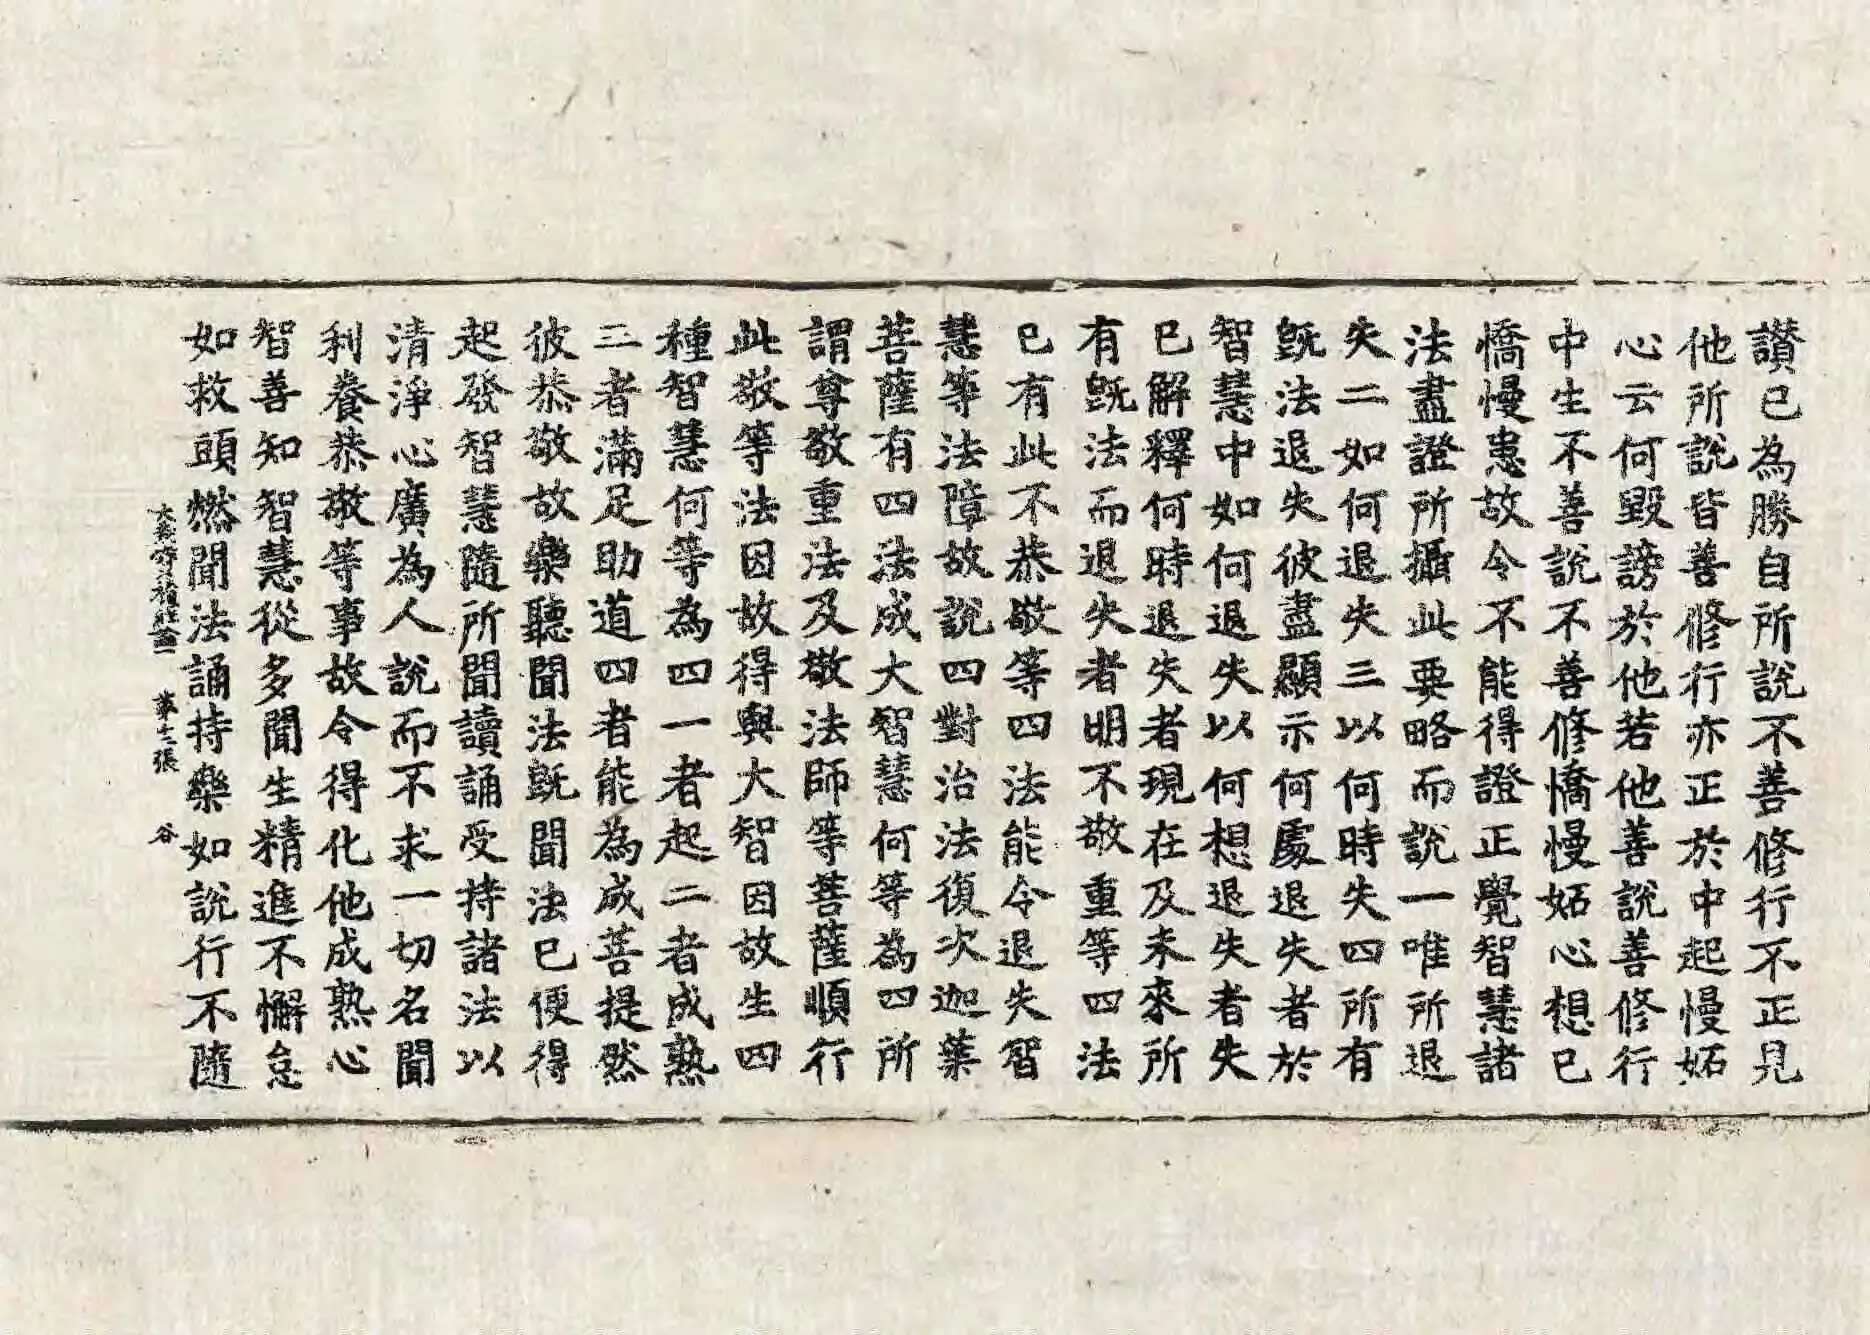 讃已為勝自所說不善修行不正見
他所說皆善修行亦正於中起慢妬
心云何毀謗於他若他善說善修行
中生不善說不善修憍慢妬心想已
憍慢恚故令不能得證正覺智慧諸
法盡證所攝此要略而說一唯所退
失二如何退失三以何時失四所有
旣法退失彼盡顯示何處退失者於
智慧中如何退失以何想退失者失
已解釋何時退失者現在及未來所
有旣法而退失者明不敬重等四法
已有此不恭敬等四法能令退失智
慧等法障故說四對治法復次迦葉
菩薩有四法成大智慧何等為四所
謂尊敬重法及敬法師等菩薩順行
此敬等法因故得與大智因故生四
種智慧何等為四一者起二者成熟
三者滿足助道四者能為成菩提然
彼恭敬故樂聽聞法旣聞法已便得
起發智慧隨所聞讀誦受持諸法以
清淨心廣為人說而不求一切名聞
利養恭敬等事故令得化他成熟心
智善知智慧從多聞生精進不懈怠
如救頭燃聞法誦持樂如說行不隨
大寶積經論一 第十二張 谷